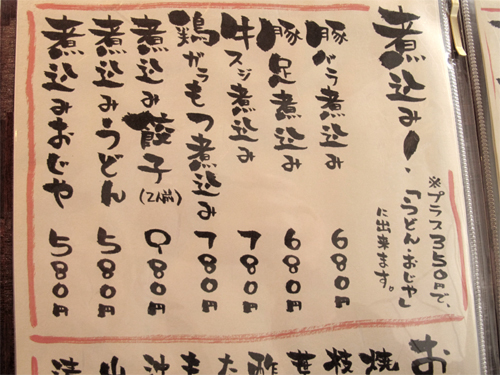 煮込み！
※プラス350円で、
「うどん・おじや」
に出来ます。
豚バラ煮込み 680円
豚足煮込み 680円
牛スジ煮込み 780円
鶏ガラもつ煮込み 780円
煮込み餃子(2人前) 980円
煮込みうどん 580円
煮込みおじや 580円
お
焼
枝
葉
酢
た
も
沖
山
漬